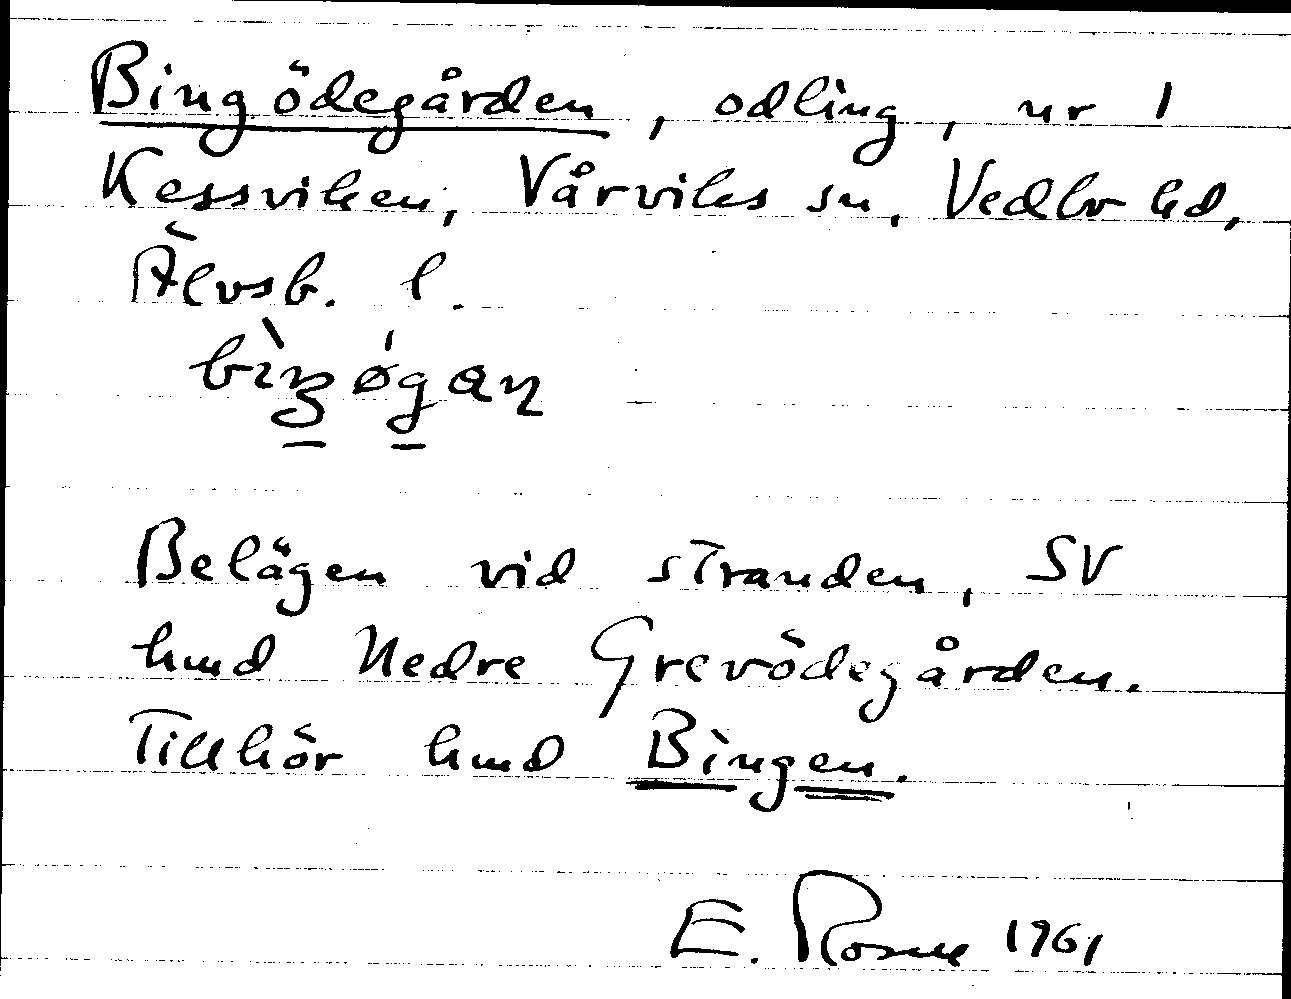 Bingödegården, odling, nr 1
Kessviken, Vårviks sn, Vedbo hd,
Älvsb. l.
Belägen vid stranden, SV
hmd Nedre Grevödegården.
Tillhör hmd Bingen.
E. Rosne 1961